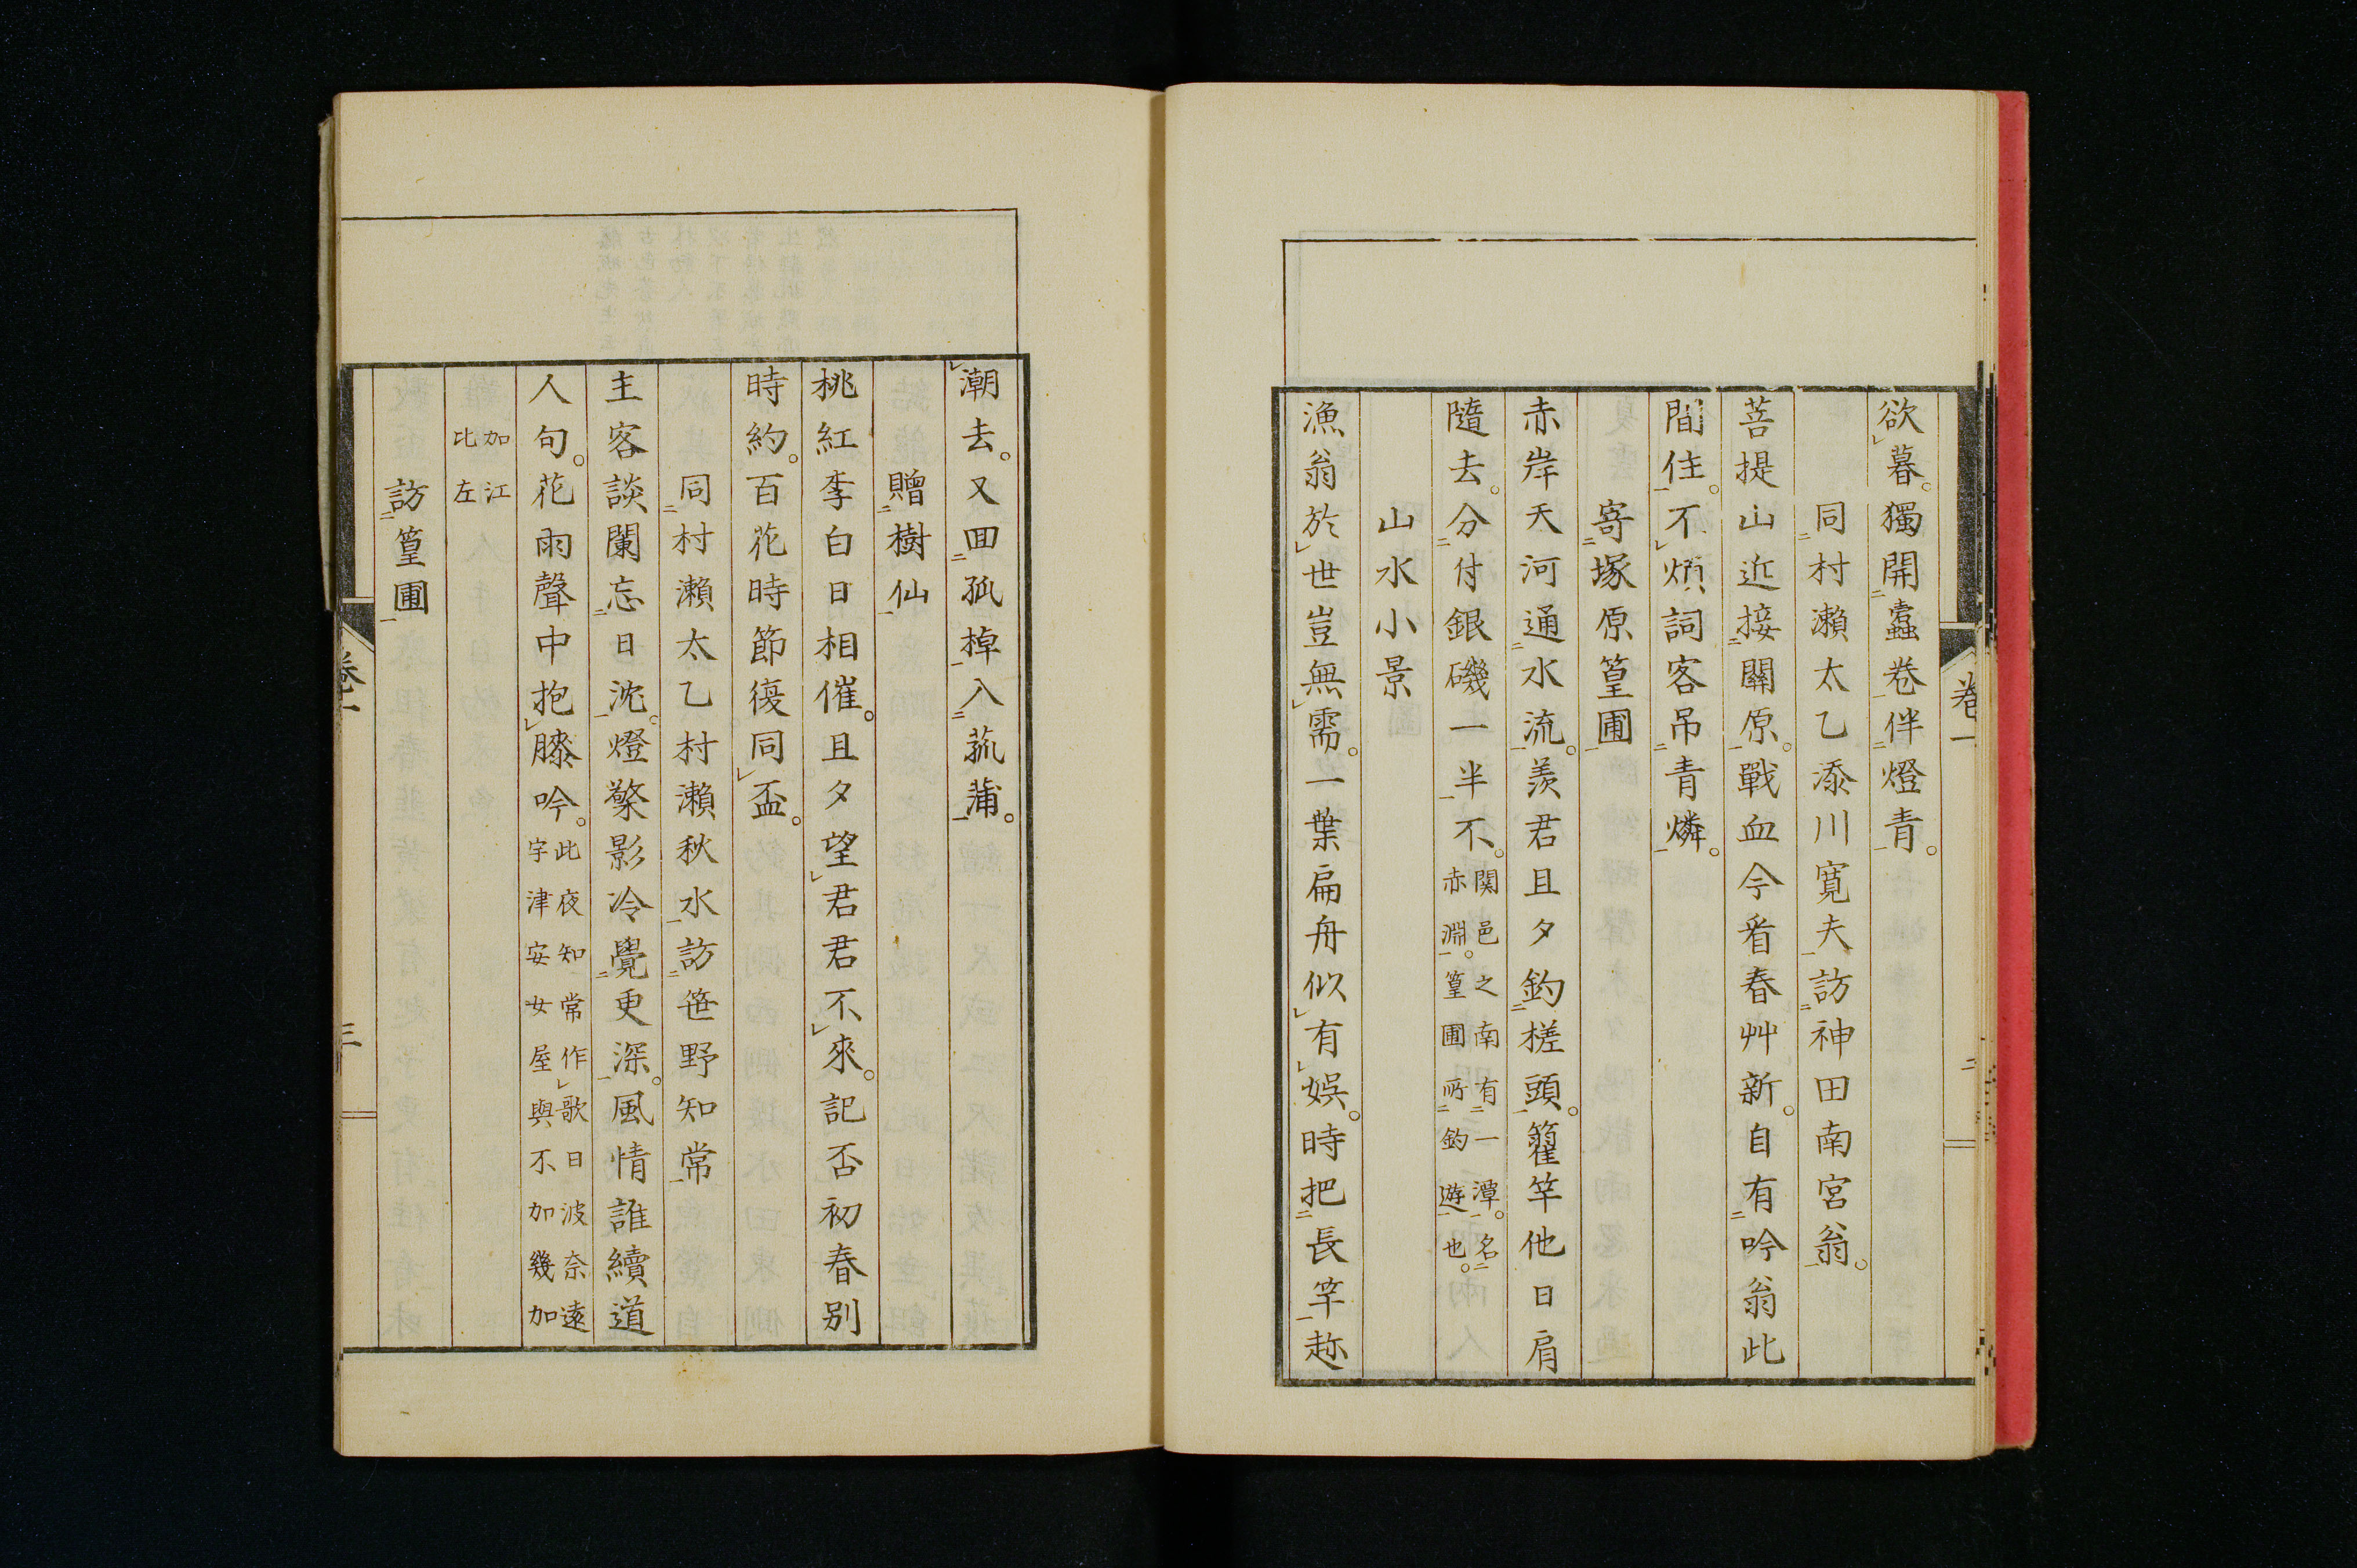 卷一
二
欲暮。獨開蠧卷伴燈青。
同村瀨太乙添川寛夫訪神田南宮翁。
菩提山近接關原。戰血今看春艸新。自有吟翁此
間住。不煩詞客吊青燐。
寄塚原篁圃
赤岸天河通水流。羨君且夕釣槎頭。籊竿他日肩
隨去。分付銀磯一半不。関邑之南有一潭。名
赤淵。篁圃所釣遊也。
山水小景
漁翁於世豈無需。一葉扁舟似有娯。時把長竿趂
潮去。又囬孤棹入菰蒲。
贈樹仙
桃紅李白日相催。且夕望君君不來。記否初春別
時約。百花時節復同盃。
同村瀨太乙村瀨秋水訪笹野知常
主客談闌忘日沈。燈檠影冷覺更深。風情誰續道
人句。花雨聲中抱膝吟。此夜知常作歌曰波奈遠
宇津安女屋與不加幾加
加江
比左
訪篁圃
卷一
三